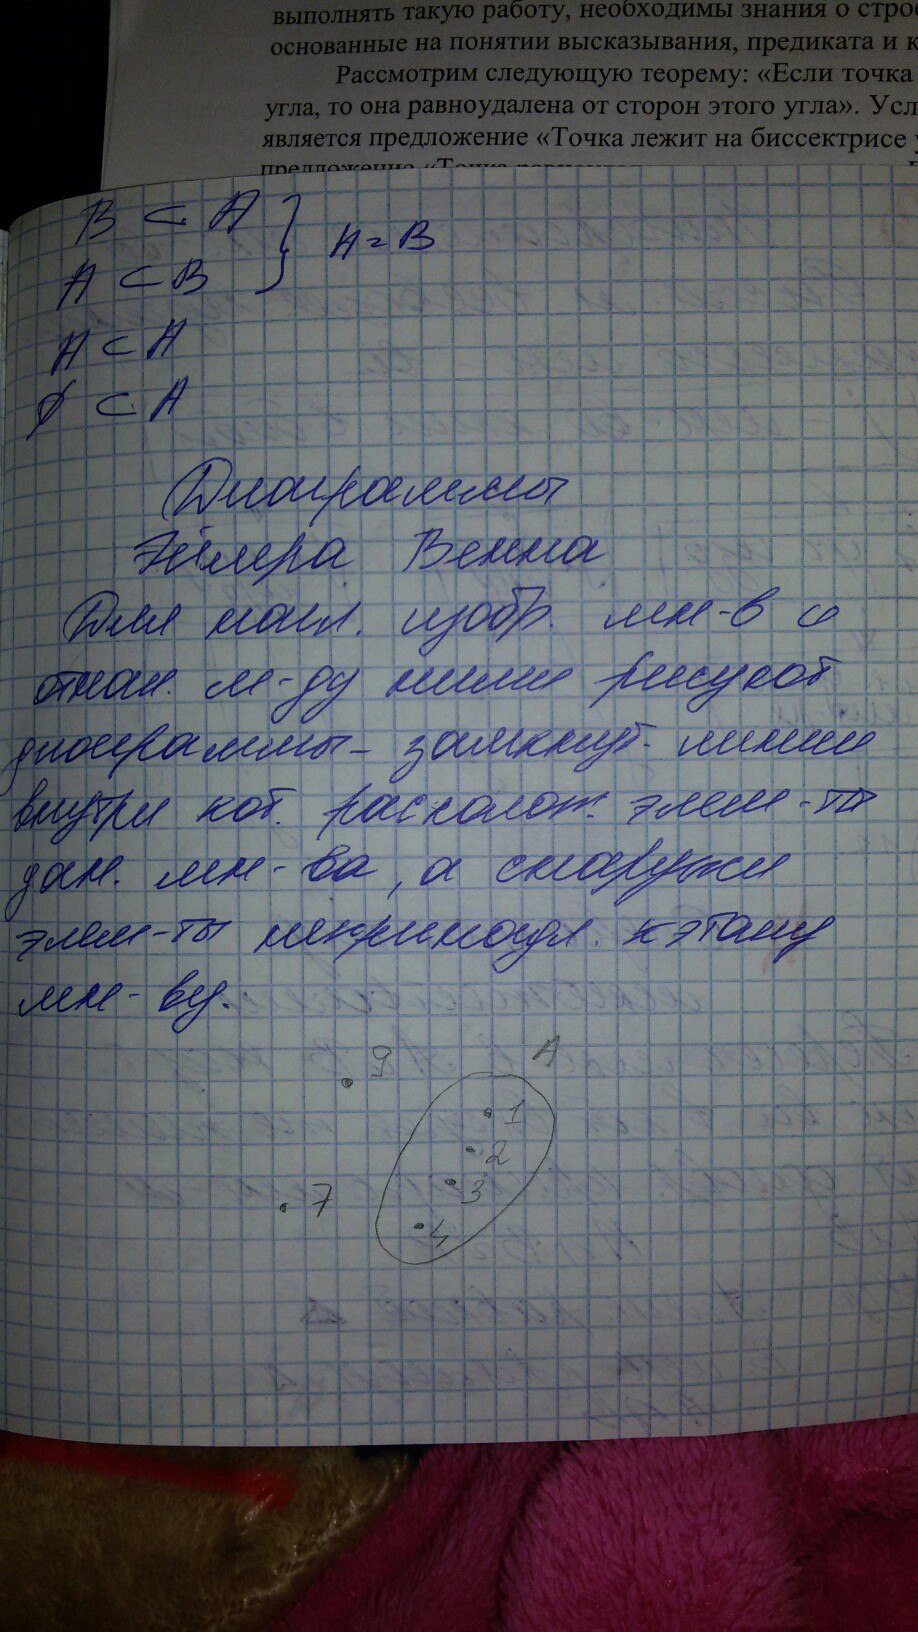 выполнять такую работу, необходимы знания о строе
основанные на понятии высказывания, предиката и к
Рассмотрим следующую теорему: «Если точка
угла, то она равноудалена от сторон этого угла». Усл
является предложение «Точка лежит на биссектрисе у
предложение «Точка
B ⊂ A } A = B
A ⊂ B
A ⊂ A
∅ ⊂ A
Диаграммы
Эйлера Венна
Для нагл. изобр. мн-в и
отнош. м-ду ними рисуют
диаграммы - замкнут. линии
внутри кот. располож. элем-ты
дан. мн-ва, а снаружи
элем-ты непринадл. к этому
мн-ву.
9 A
1
2
3
7
4